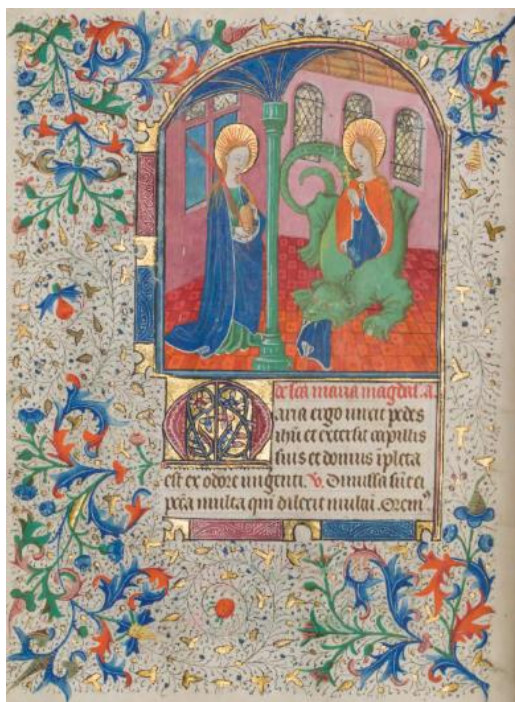 de sca maria magdal.a.
aria ergo unxit pedes
ihu et extersit capillis
suis et domus ipleta
est ex odore ungenti. V. Dimissa sūt ei
pcca multa qm̄ dilexit multū. Orem⁹